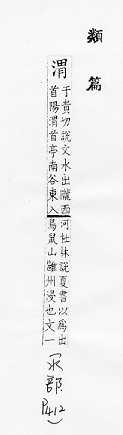 類篇
渭
于貴切說文水出隴西
首陽渭首亭南谷東入
河杜林說夏書以為出
鳥鼠山雝州浸也文一
(水部 P412)